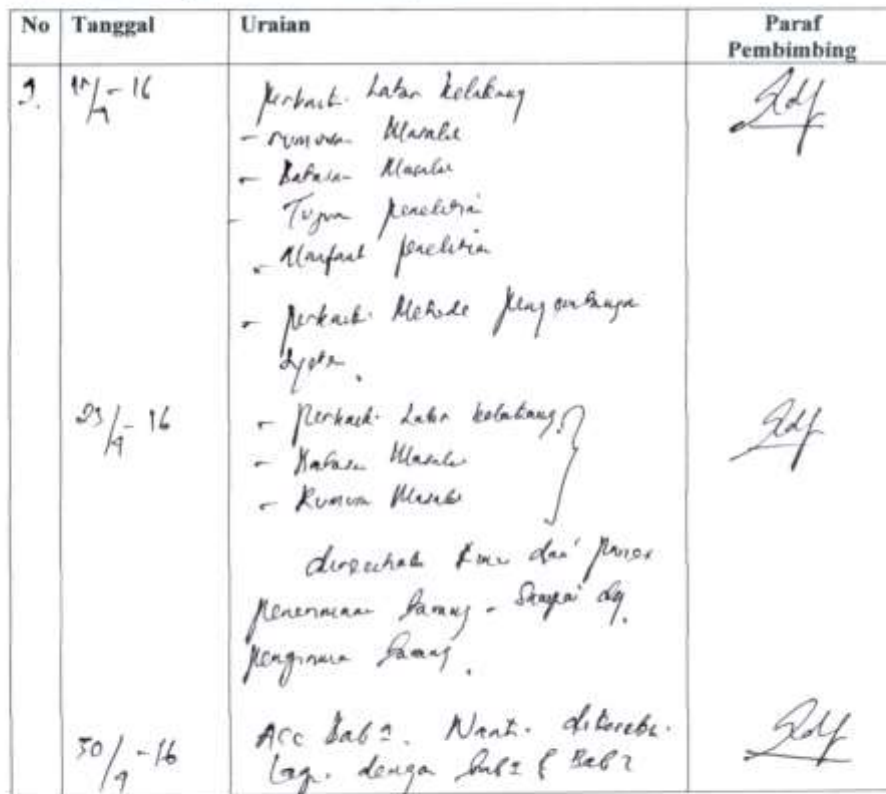 No Tanggal Uraian Paraf Pembimbing
Perbaiki Latar belakang
- rumusan Masalah
- Batasan Masalah
- Tujuan penelitian
- Manfaat penelitian
- Perbaiki Metode pengembangan
System.
23/9-16 - Perbaiki Latar belakang.
- Batasan Masalah
- Rumusan Masalah
dari proses
penerimaan barang - Sampai dg.
pengiriman barang.
30/9-16 Acc Bab Nanti dikoreksi
lagi dengan bab & Bab